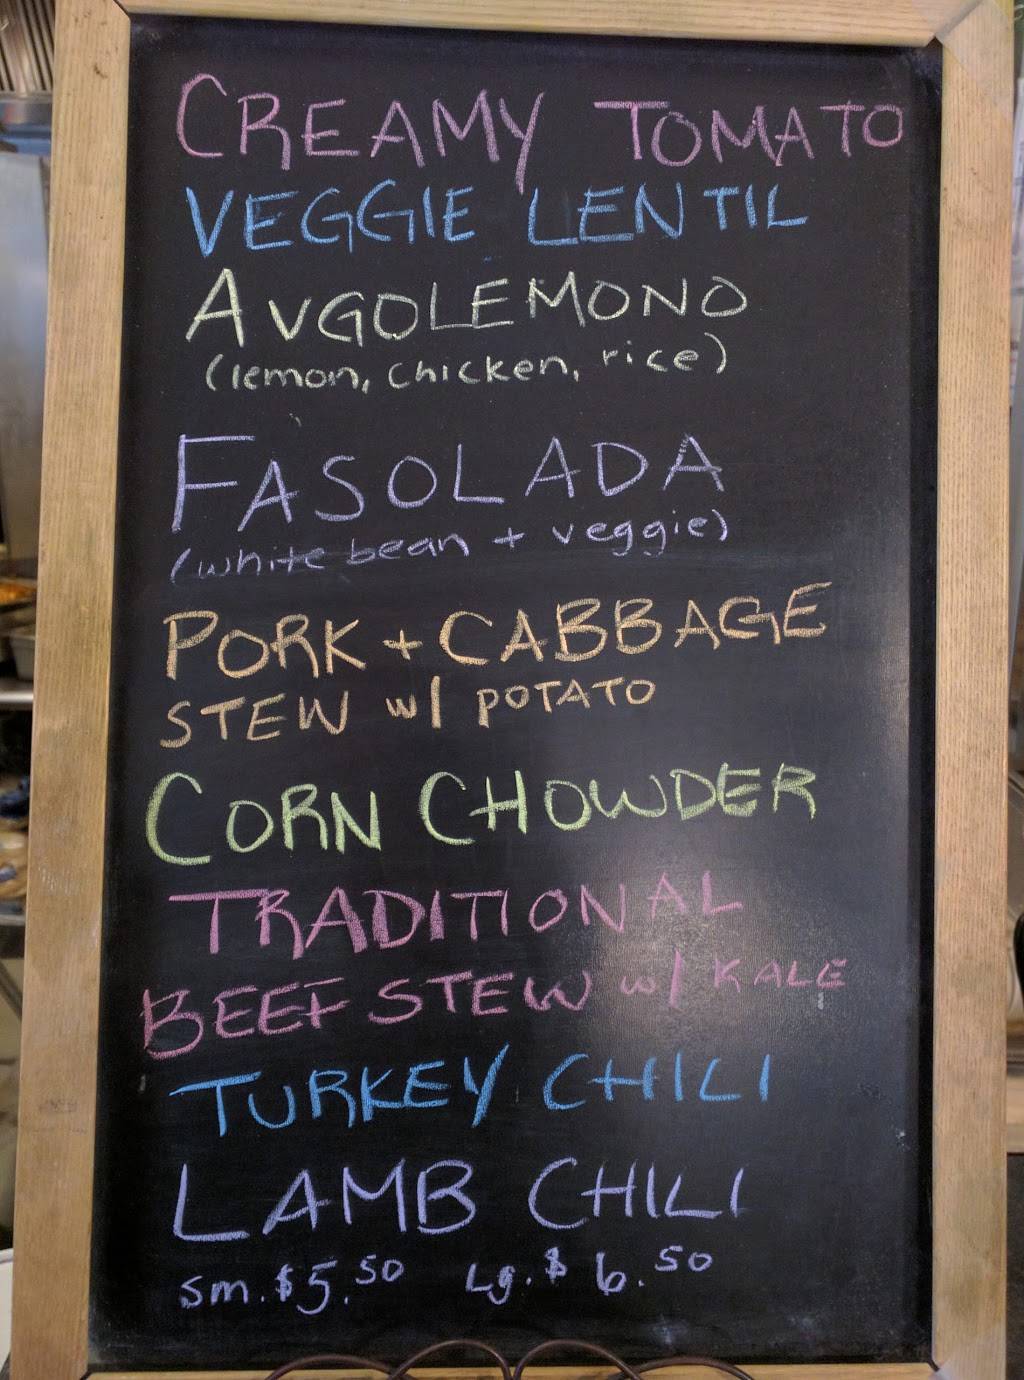 CREAMY TOMATO
VEGGIE LENTIL
AVGOLEMONO
(lemon, chicken, rice)
FASOLADA
(white bean + veggie)
PORK + CABBAGE
STEW w/ POTATO
CORN CHOWDER
TRADITIONAL
BEEF STEW w/ KALE
TURKEY CHILI
LAMB CHILI
Sm. $5.50 Lg. $6.50